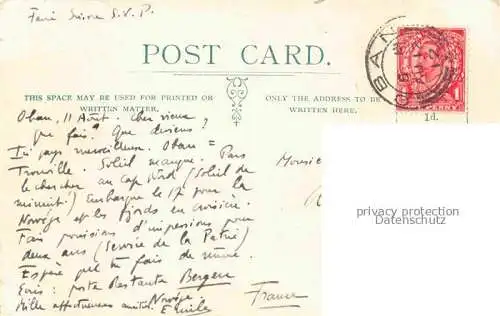 Faire Suivre S.V.P.
POST CARD.
THIS SPACE MAY BE USED FOR PRINTED OR
WRITTEN MATTER.
ONLY THE ADDRESS TO BE
WRITTEN HERE.
OBAN
1
PENNY
1d.
Oban, 11 Août. Cher vieux,
que fais? Que deviens?
Ici pays merveilleux. Oban =
Trouville. Soleil manque. Pars
le chercher au Cap Nord (Soleil de
minuit) Embarque le 17 pour la
Novège et les fjords en croisière.
Fais provisions d'impressions pour
deux ans (Service de la Patrie)
Espère que tu fais de même.
Ecris: poste Restante Bergen
Novège
Mille affectueuses amitiés. Emile
Monsieu
France
privacy protection
Datenschutz